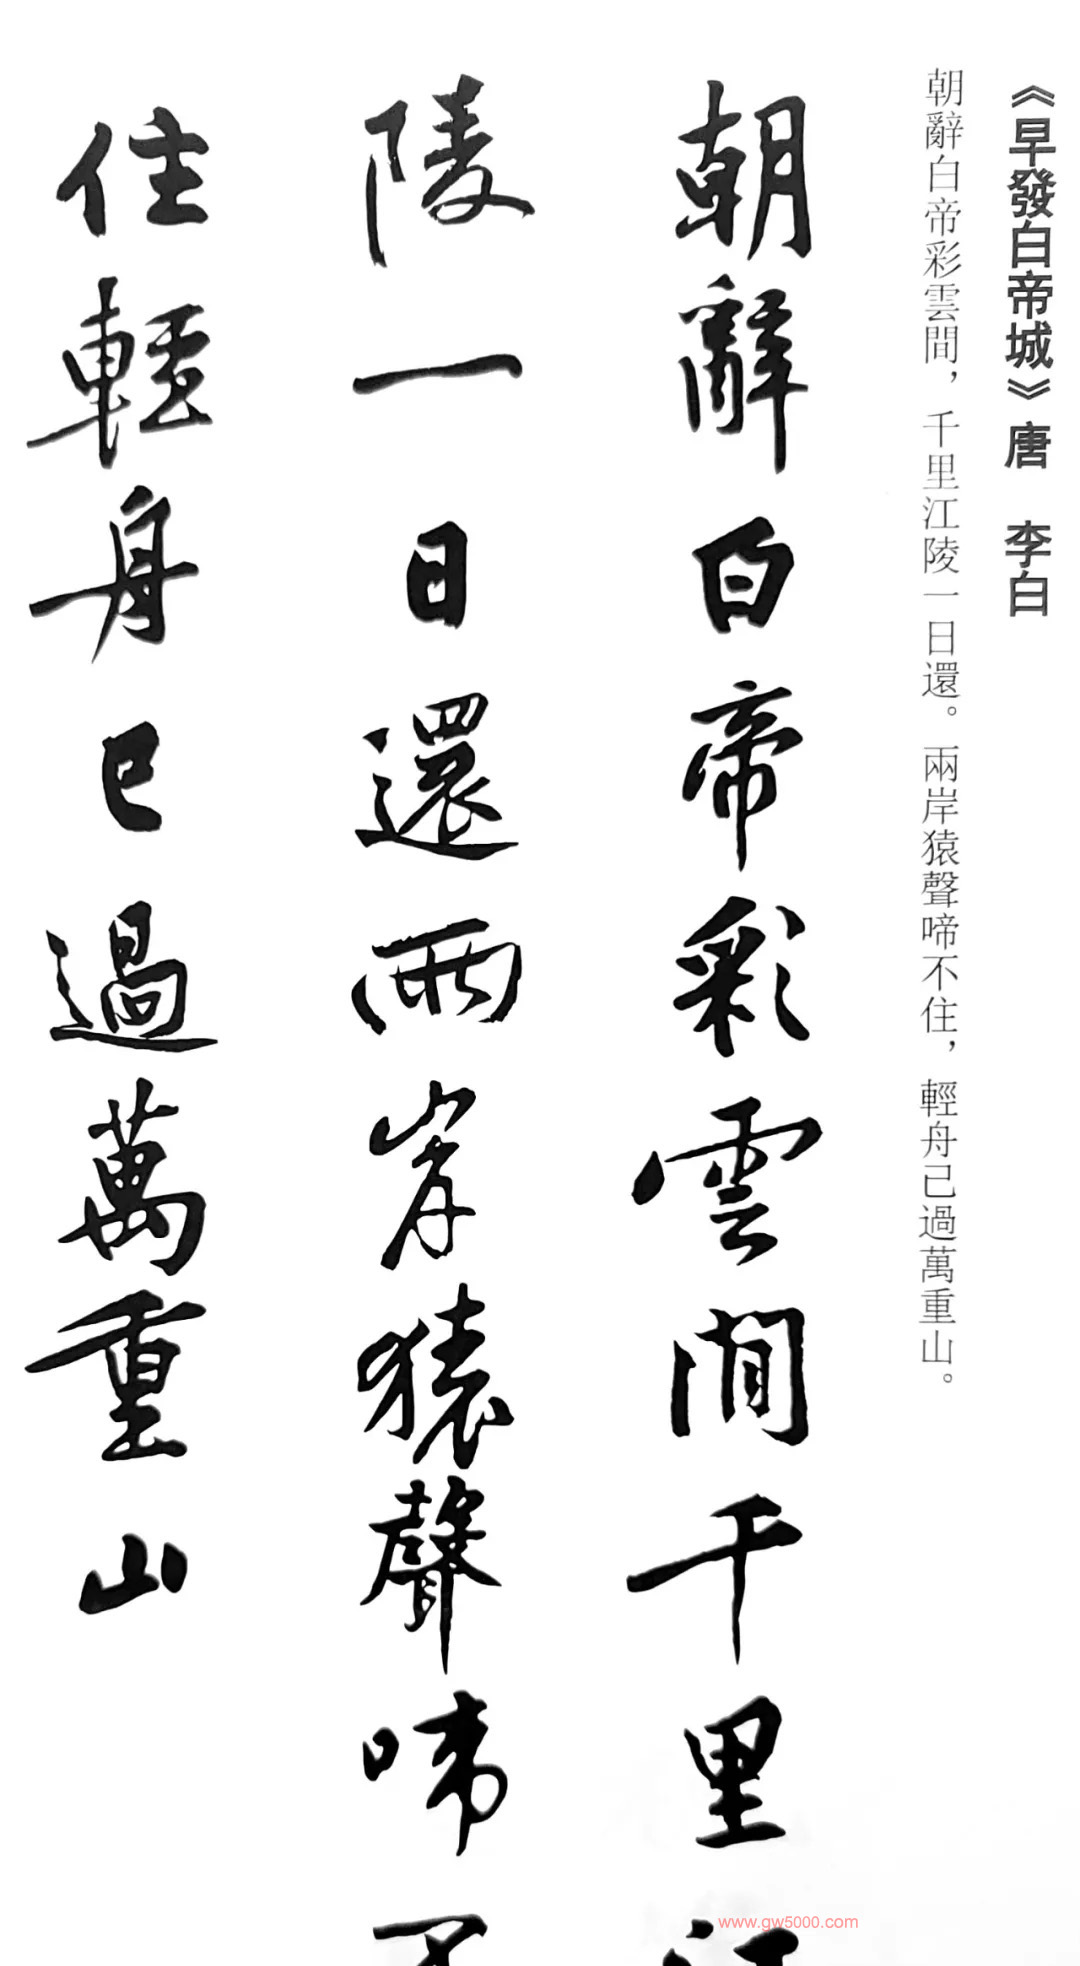 《早發白帝城》唐 李白
朝辭白帝彩雲間，千里江陵一日還。兩岸猿聲啼不住，輕舟已過萬重山。
朝辭白帝彩雲間千里江
陵一日還兩岸猿聲啼不
住輕舟已過萬重山
www.gw5000.com